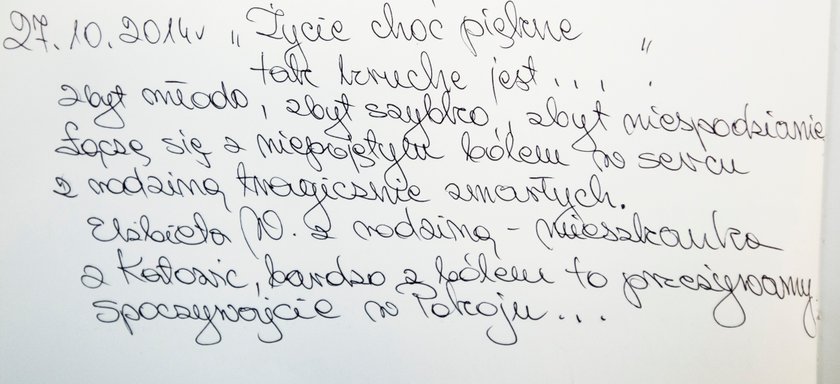 27.10.2014r „Życie choć piękne
tak kruche jest..."
zbyt młodo, zbyt szybko, zbyt niespodzianie
Łączę się z niepojętym bólem w sercu
z rodziną tragicznie zmarłych.
Elżbieta W. z rodziną - mieszkanka
z Katowic, bardzo z bólem to przeżywamy.
Spoczywajcie w Pokoju...